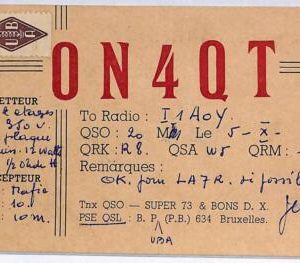 UBA
ON4QT
ETTEUR
2 etages
350 v.
plaque
12 Watts
1/2 Onde H
CEPTEUR
Mafia
10 m.
To Radio : I1AOY.
QSO : 20 M Le 5-X-
QRK : R8. QSA W5 QRM :
Remarques :
OK. pour LA7R. si possible
Tnx QSO — SUPER 73 & BONS D. X.
PSE QSL : B. P. (P.B.) 634 Bruxelles.
UBA